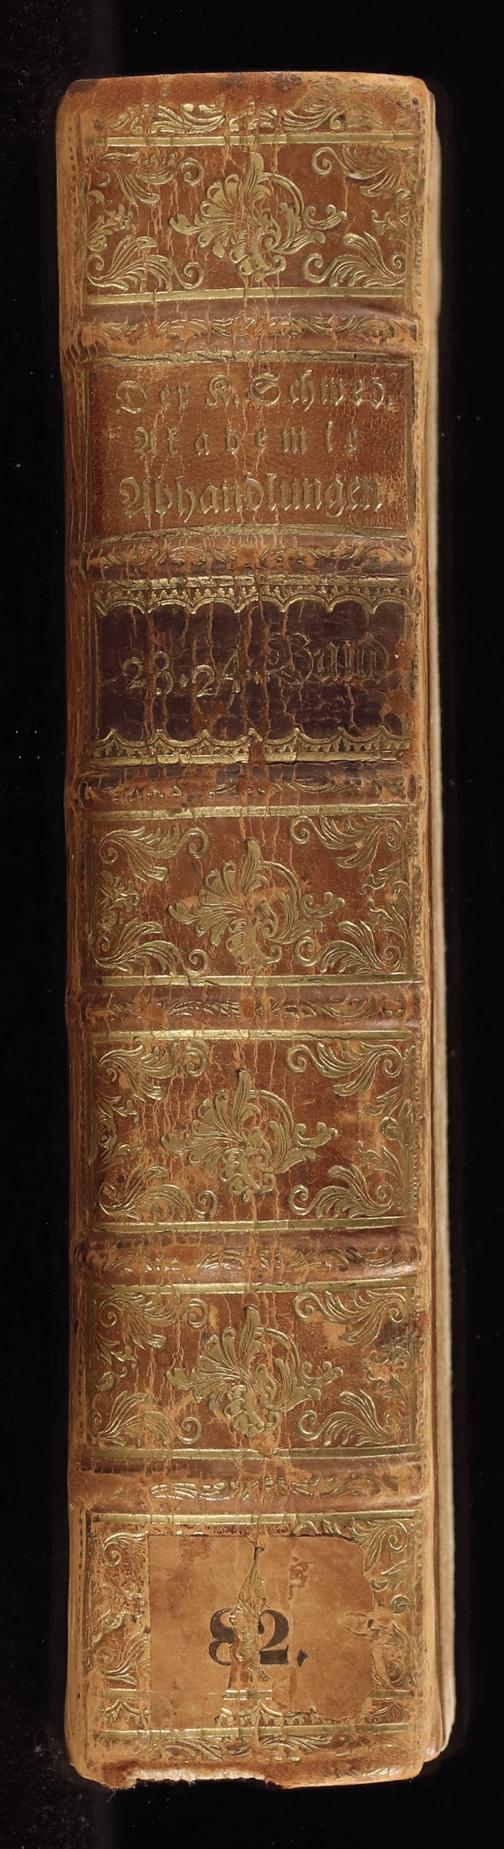 Der K. Schwed.
Akademie
Abhandlungen
23.24. Band
82.